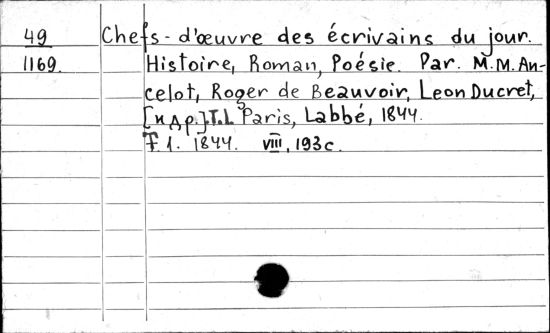 49 Chefs-d'œuvre des écrivains du jour.
1169. Histoire, Roman, Poésie. Par. M.M. An-
celot, Roger de Beauvoir, Leon Ducret,
[и др.] T.1. Paris, Labbé, 1844.
T.1. 1844. VIII, 193c.